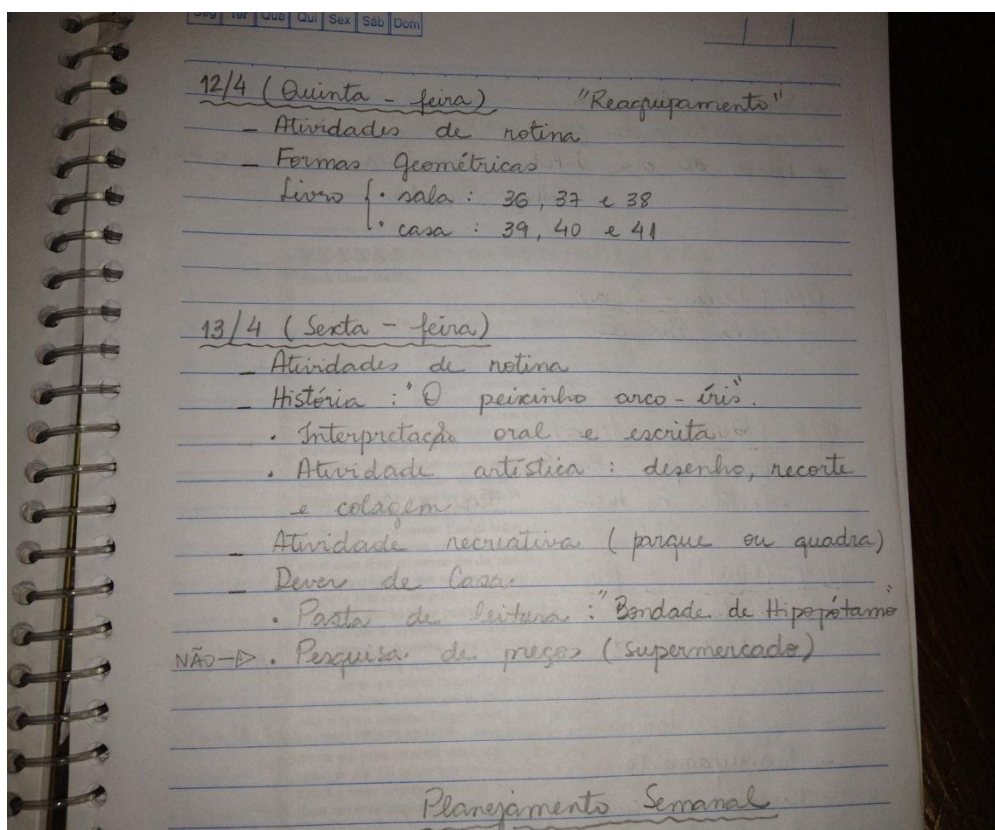 Seg Ter Qua Qui Sex Sáb Dom
12/4 (Quinta - feira) "Reagrupamento"
- Atividades de rotina
- Formas Geométricas
Livro { • sala : 36, 37 e 38
• casa : 39, 40 e 41
13/4 (Sexta - feira)
- Atividades de rotina
- História : "O peixinho arco-íris".
• Interpretação oral e escrita
• Atividade artística : desenho, recorte
e colagem
- Atividade recreativa (parque ou quadra)
- Dever de Casa.
• Pasta de leitura : "Bondade de Hipopótamo"
NÃO → • Pesquisa de preços (supermercado)
Planejamento Semanal